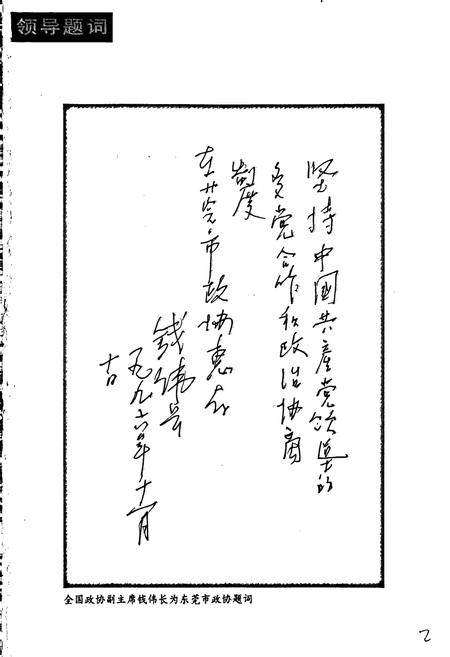 领导题词
坚持中国共产党领导的
多党合作和政治协商
制度
东莞市政协惠存
钱伟长
一九九六年十一月
十日
全国政协副主席钱伟长为东莞市政协题词
2